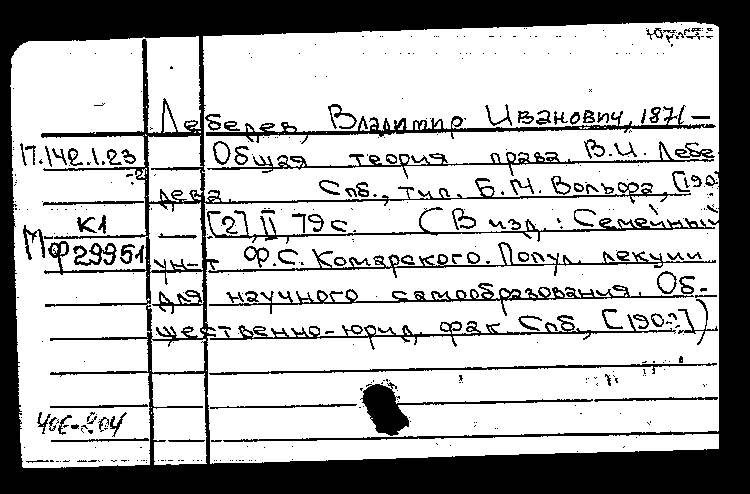 Юрист
Лебедев, Владимир Иванович, 1871 —
17.142.1.23 Общая теория права. В.И. Лебе-
-2 дева. Спб., тип. Б.М. Вольфа, [190
К1 [2], II, 79 с. (В изд.: Семейный
МФ 29951 ун-т Ф.С. Комарского. Попул. лекции
для научного самообразования. Об-
щественно-юрид. фак. Спб., [190?])
40Е-204